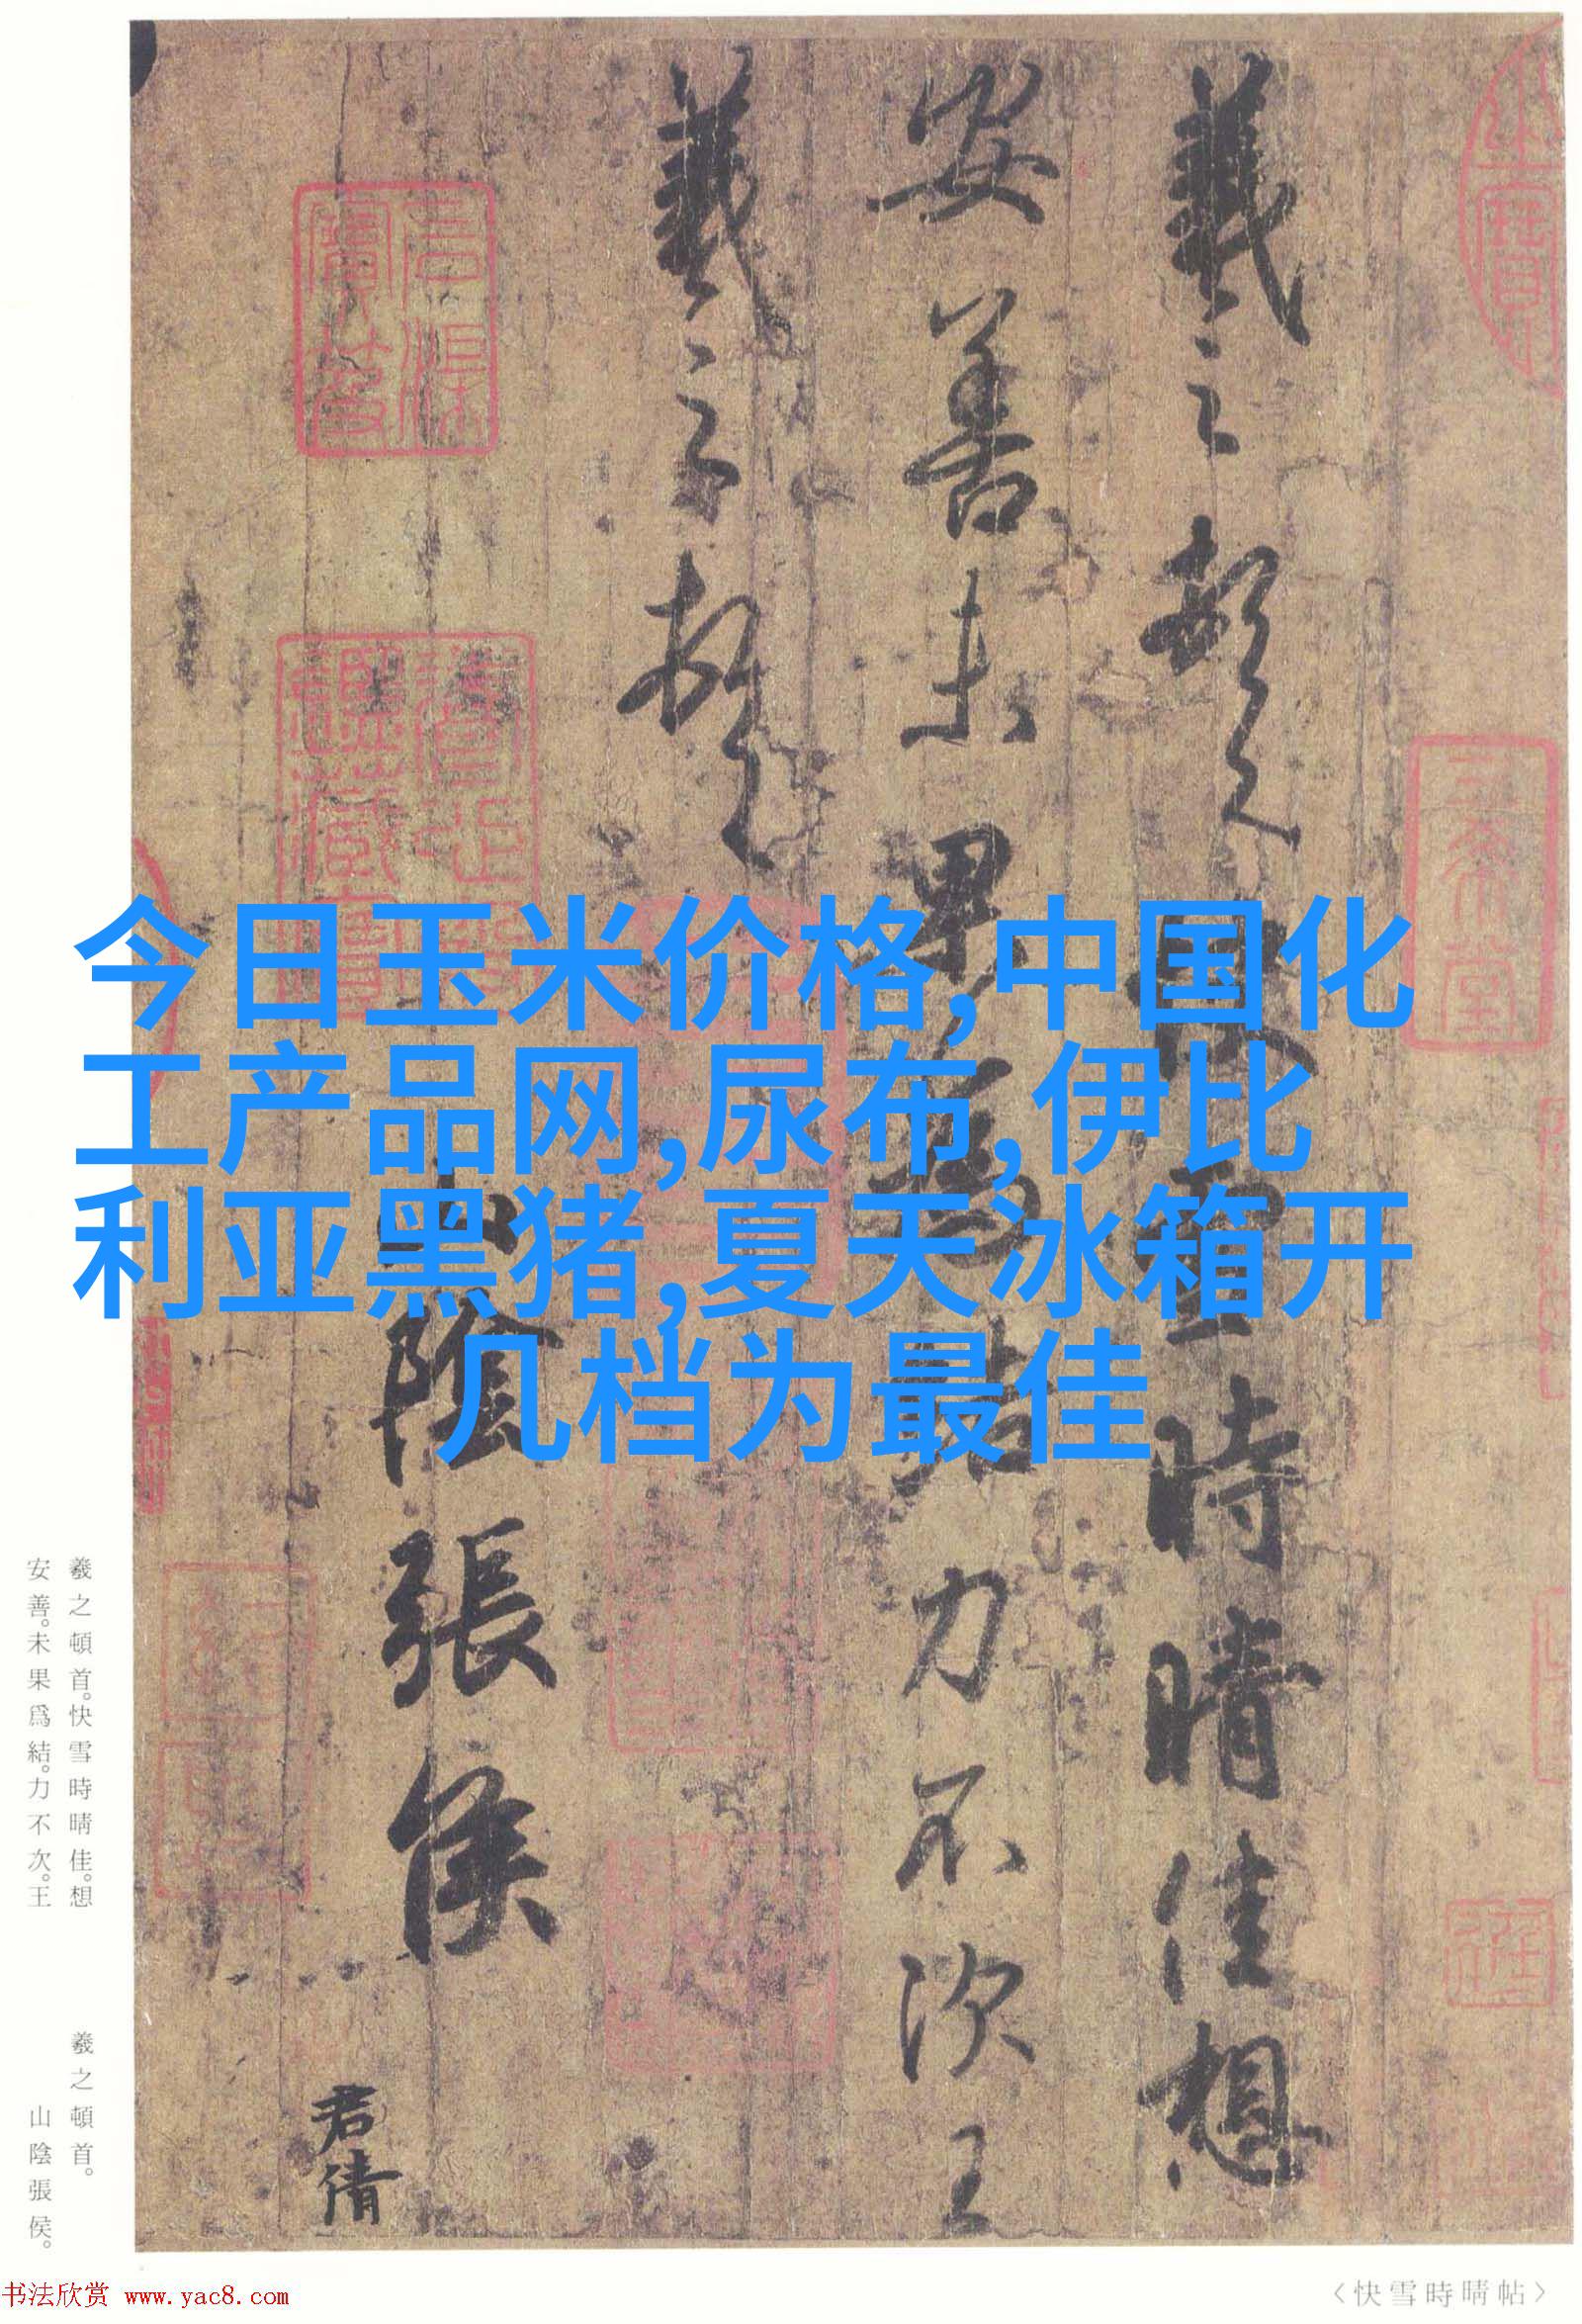 今日玉米价格,中国化
工产品网,尿布,伊比
利亚黑猪,夏天冰箱开
几档为最佳
羲之頓首快雪時晴佳想
安善未果為結力不次王
羲之頓首
山陰張侯
君倩
羲之頓首。快雪時晴佳。想
安善。未果爲結。力不次。王
羲之頓首。
山陰張侯。
三希堂
〈快雪時晴帖〉
书法欣赏 www.yac8.com